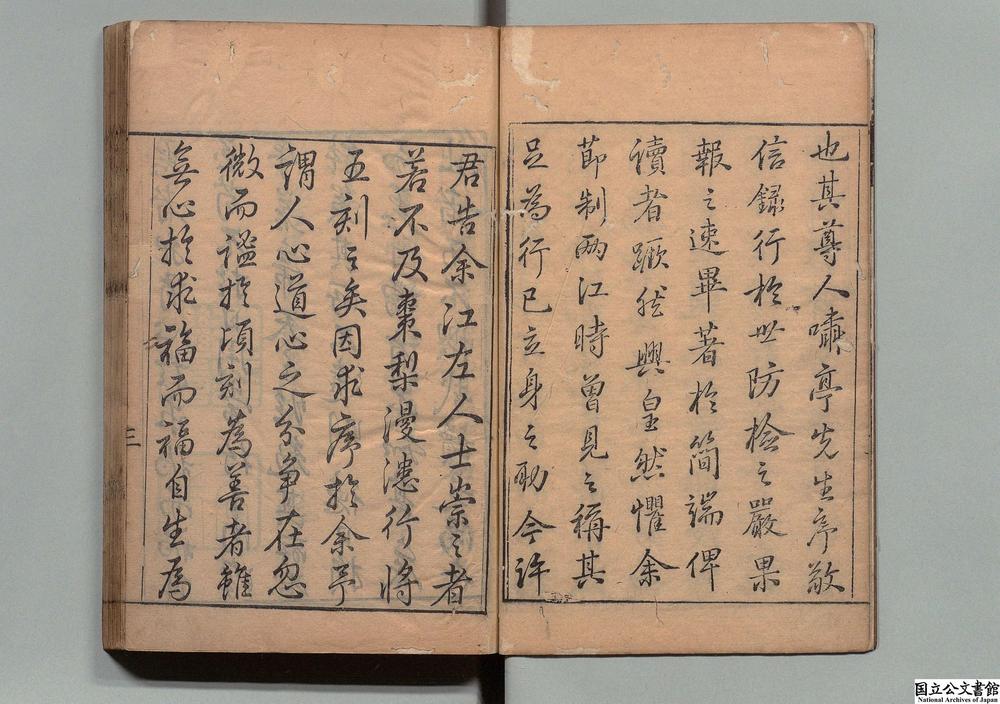 也其尊人嘯亭先生序敬
信錄行於世防檢之嚴果
報之速畢著於簡端俾
讀者蹶然興皇然懼余
節制兩江時曾見之稱其
足為行己立身之助今許
君告余江左人士崇之者
若不及棗梨漫漶行將
五刻之矣因求序於余予
謂人心道心之分爭在忽
微而謐於頃刻為善者雖
無心於求福而福自生為
三
国立公文書館
National Archives of Japan